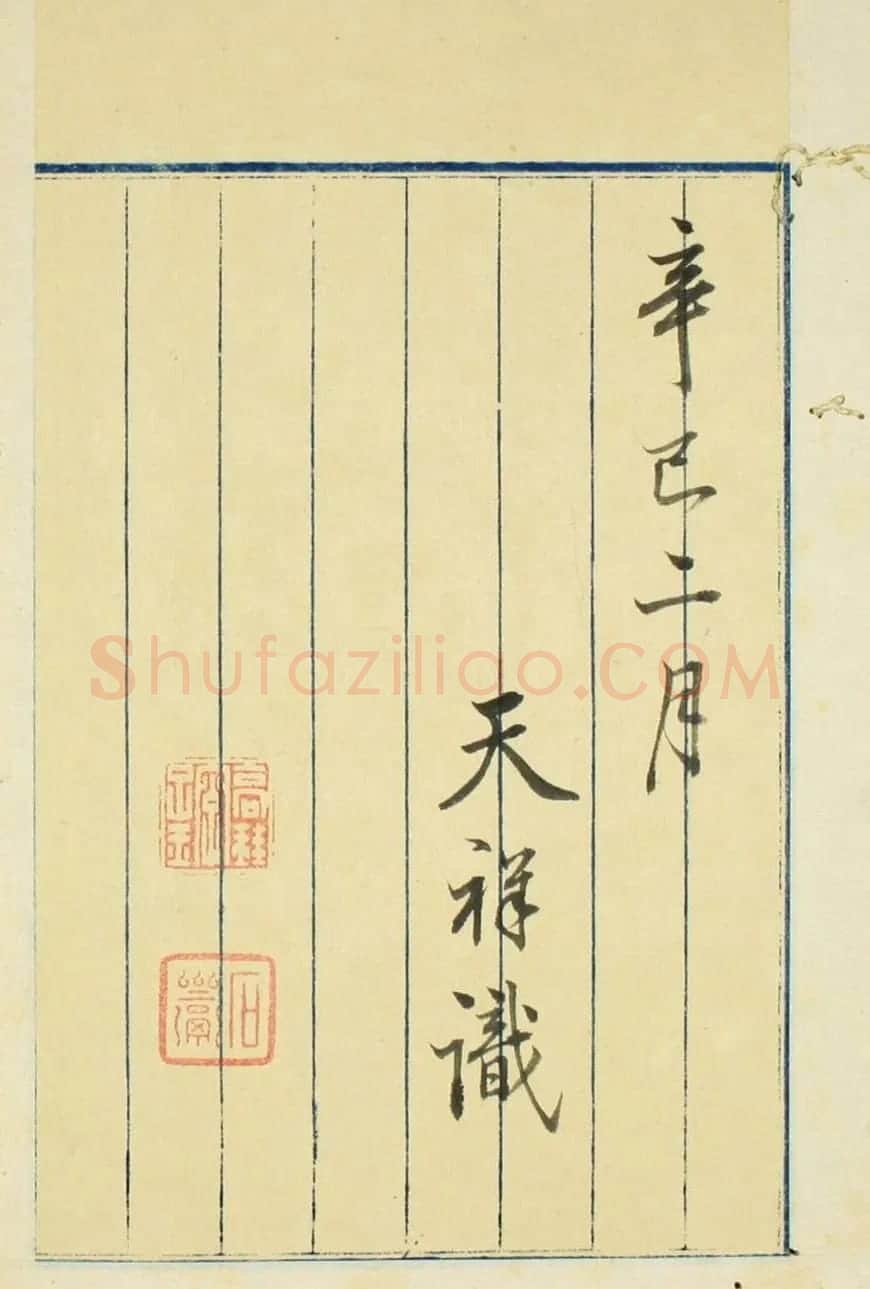 辛巳二月
天祥識
Shufaziliao.COM